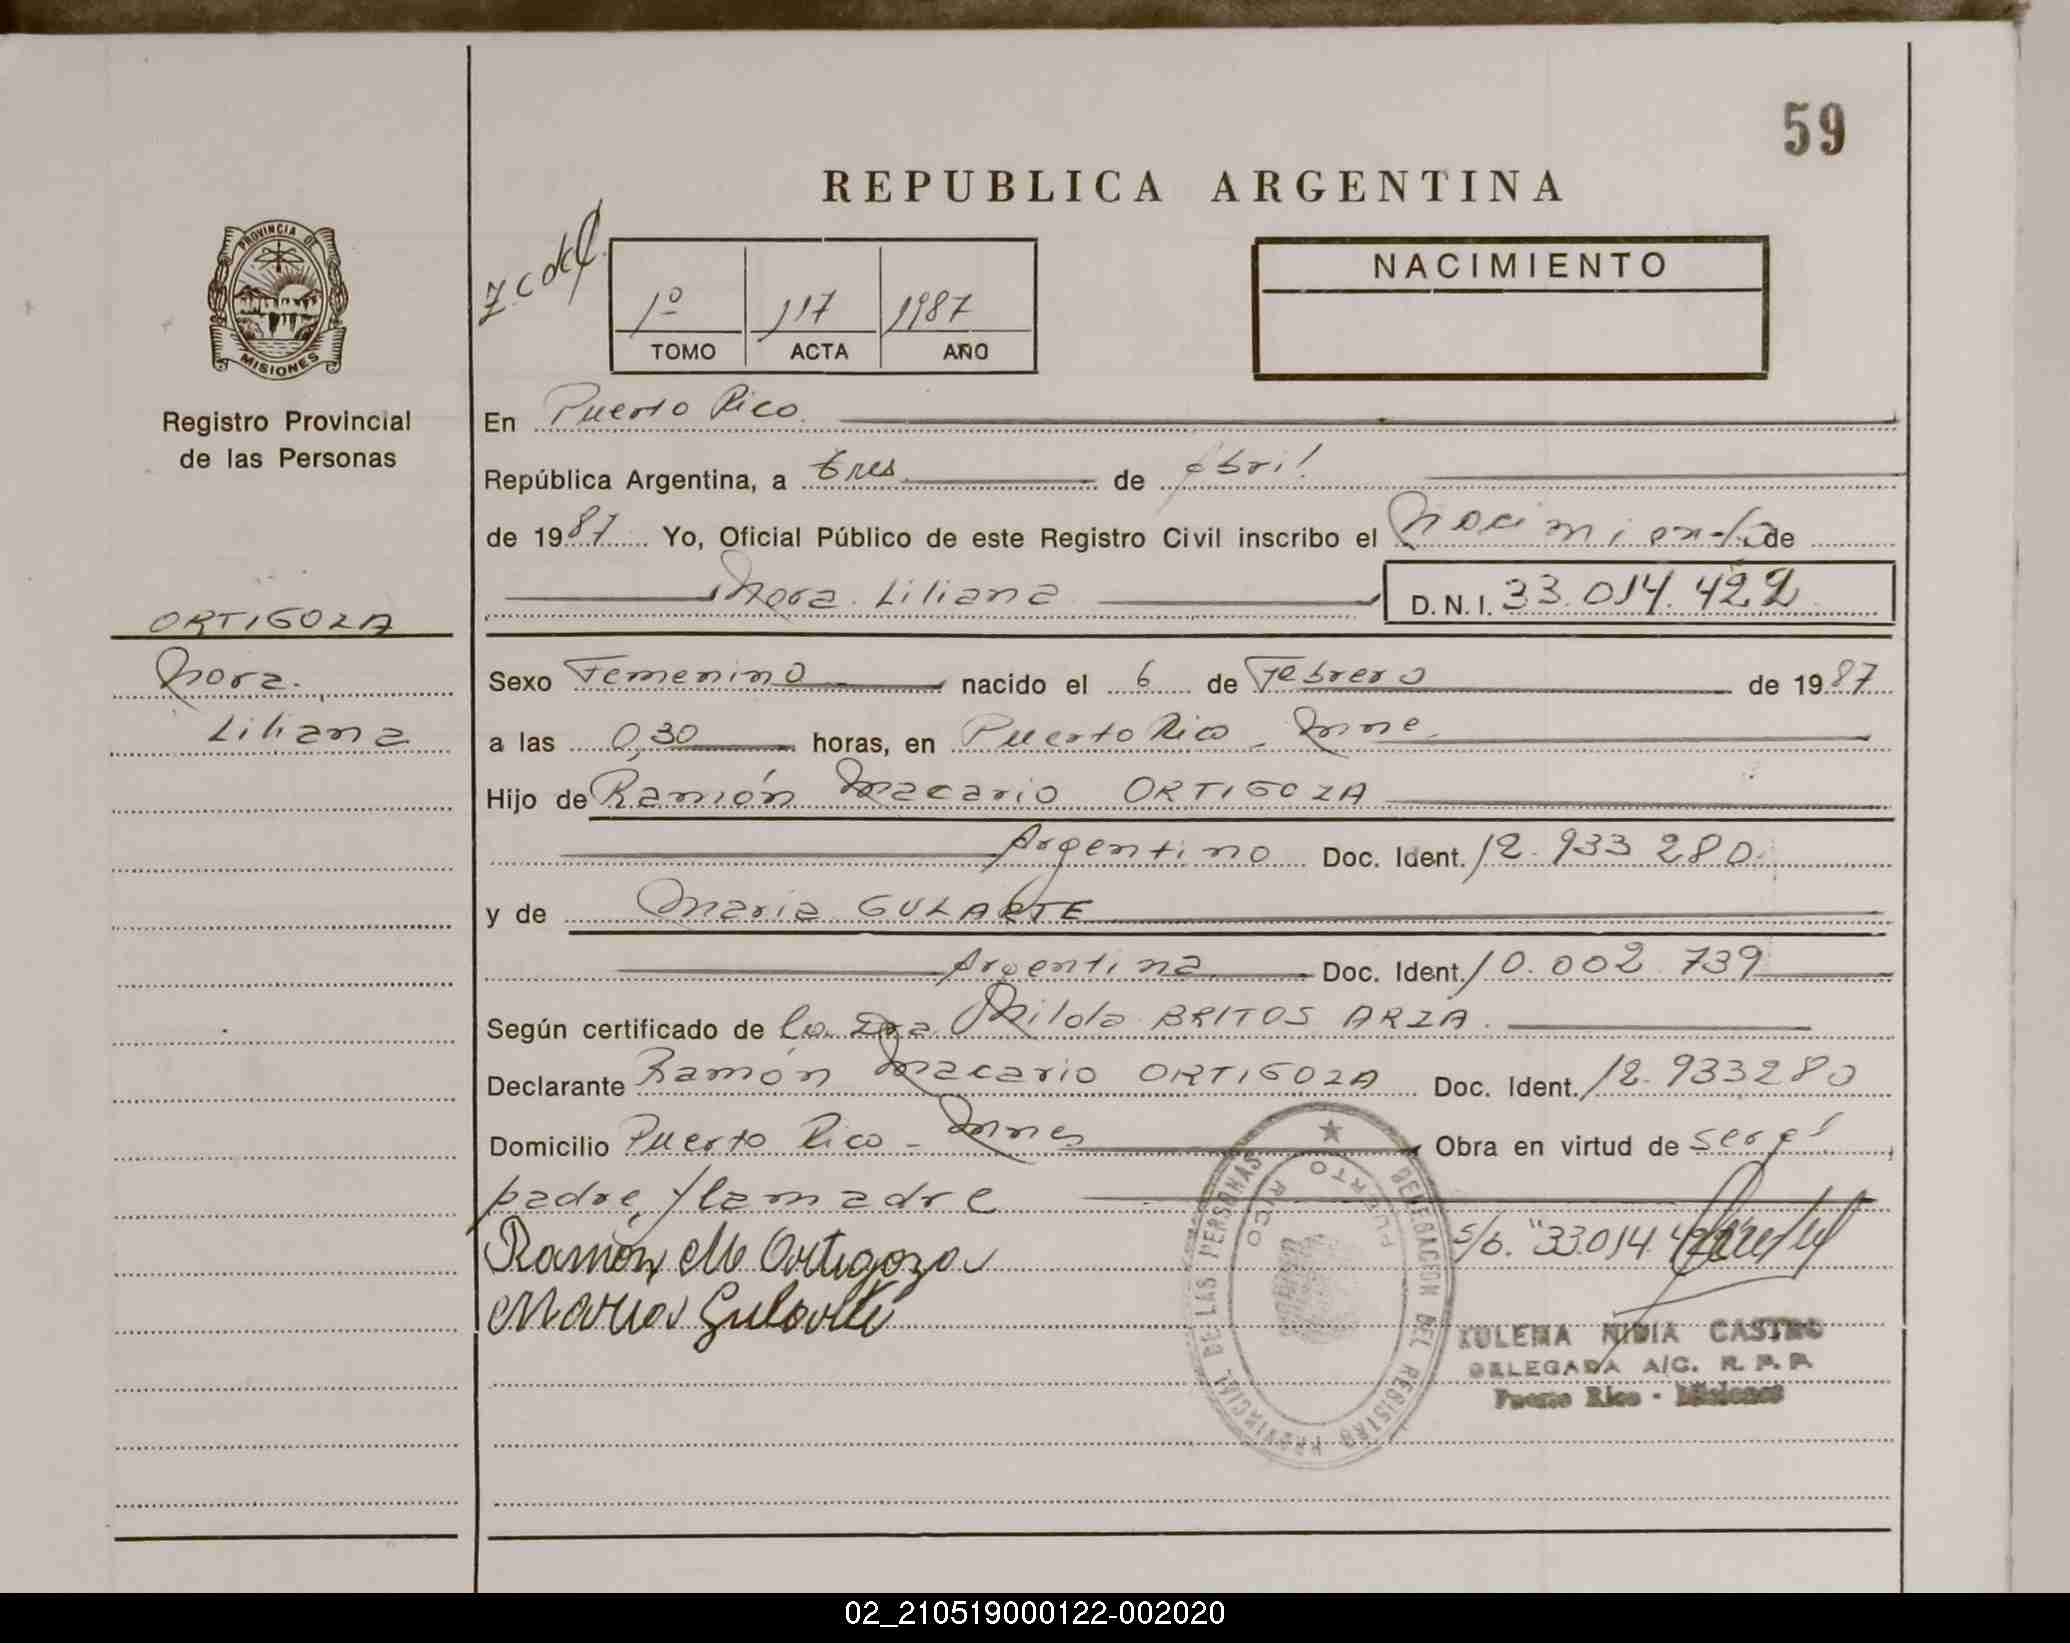 59
REPUBLICA ARGENTINA
PROVINCIA DE
MISIONES
Registro Provincial
de las Personas
ORTIGOZA
Nora
Liliana
1º 117 1987
TOMO ACTA AÑO
NACIMIENTO
En Puerto Rico
República Argentina, a tres de abril
de 1987 Yo, Oficial Público de este Registro Civil inscribo el Nacimiento de
Nora Liliana D.N.I. 33.014.422
Sexo Femenino nacido el 6 de Febrero de 1987
a las 0,30 horas, en Puerto Rico - Mnes
Hijo de Ramón Macario ORTIGOZA
Argentino Doc. Ident. 12.933 280
y de Maria GULARTE
Argentina Doc. Ident. 10.002.739
Según certificado de la Dra. Nilda BRITOS ARZA.
Declarante Ramón Macario ORTIGOZA Doc. Ident. 12.933280
Domicilio Puerto Rico - Mnes Obra en virtud de ser el
padre y la madre
Ramón M Ortigoza
Maria Gularte
s/b. "33.014.422
DELEGACION DEL REGISTRO PROVINCIAL DE LAS PERSONAS
PUERTO RICO
ZULEMA NIDIA CASTRO
DELEGADA A/C. R. P. P.
Puerto Rico - Misiones
02_210519000122-002020